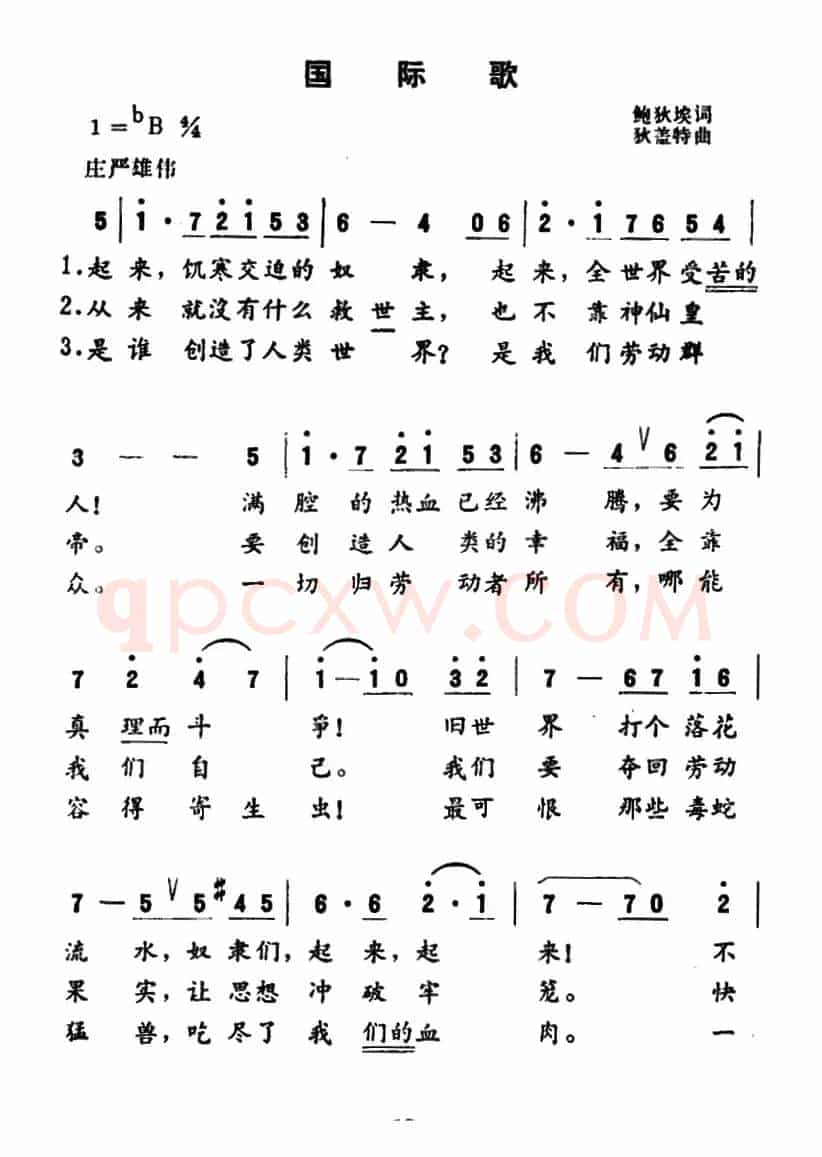 国 际 歌
鲍狄埃词
1=♭B 4/4
狄盖特曲
庄严雄伟
5 | i · 7 2̇ i 5 3 | 6 — 4 0 6 | 2̇ · i 7 6 5 4 |
1. 起来，饥寒交迫的奴 隶， 起来，全世界受苦的
2. 从来 就没有什么救世主， 也不 靠神仙皇
3. 是谁 创造了人类世 界？ 是我们劳动群
3 — — 5 | i · 7 2̇ i 5 3 | 6 — 4 V 6 2̇ i |
人！ 满腔的热血已经沸 腾，要为
帝。 要创造人 类的幸 福，全靠
众。 一切归劳 动者所 有，哪能
qpcxw.COM
7 2̇ 4̇ 7 | i — i 0 3̇ 2̇ | 7 — 6 7 i 6 |
真 理而斗 争！ 旧世 界 打个落花
我 们 自 己。 我们 要 夺回劳动
容 得 寄 生 虫！ 最可 恨 那些毒蛇
7 — 5 V 5 #4 5 | 6 · 6 2̇ · i | 7 — 7 0 2̇ |
流 水，奴隶们，起来，起 来！ 不
果 实，让思想 冲破牢 笼。 快
猛 兽，吃尽了 我们的血 肉。 一